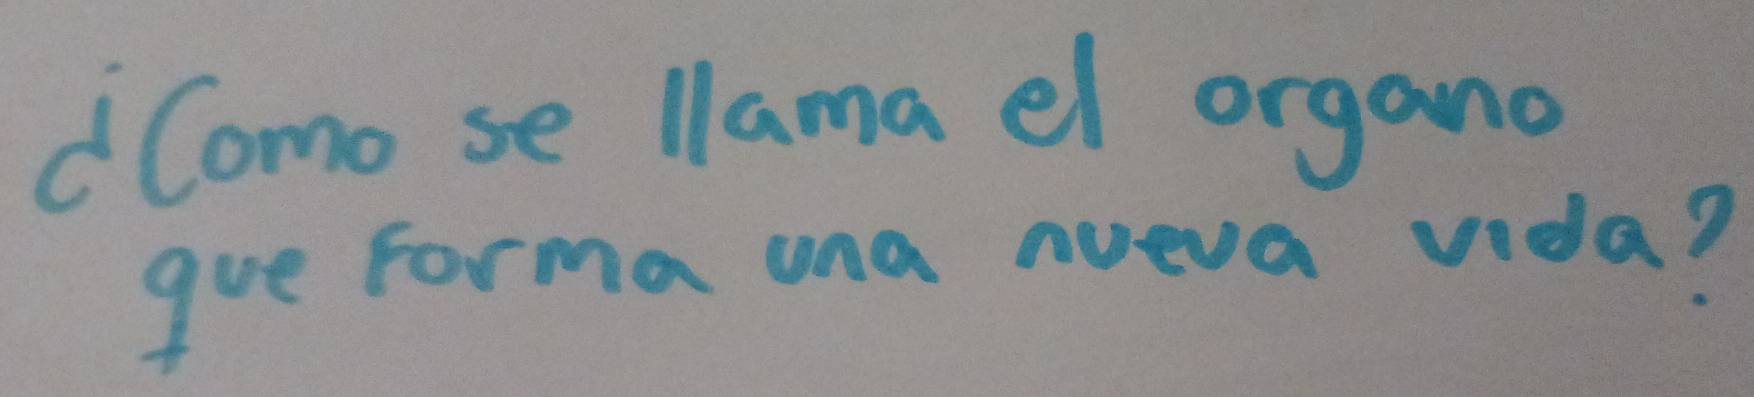 ¿Como se llama el organo
que forma una nueva vida?